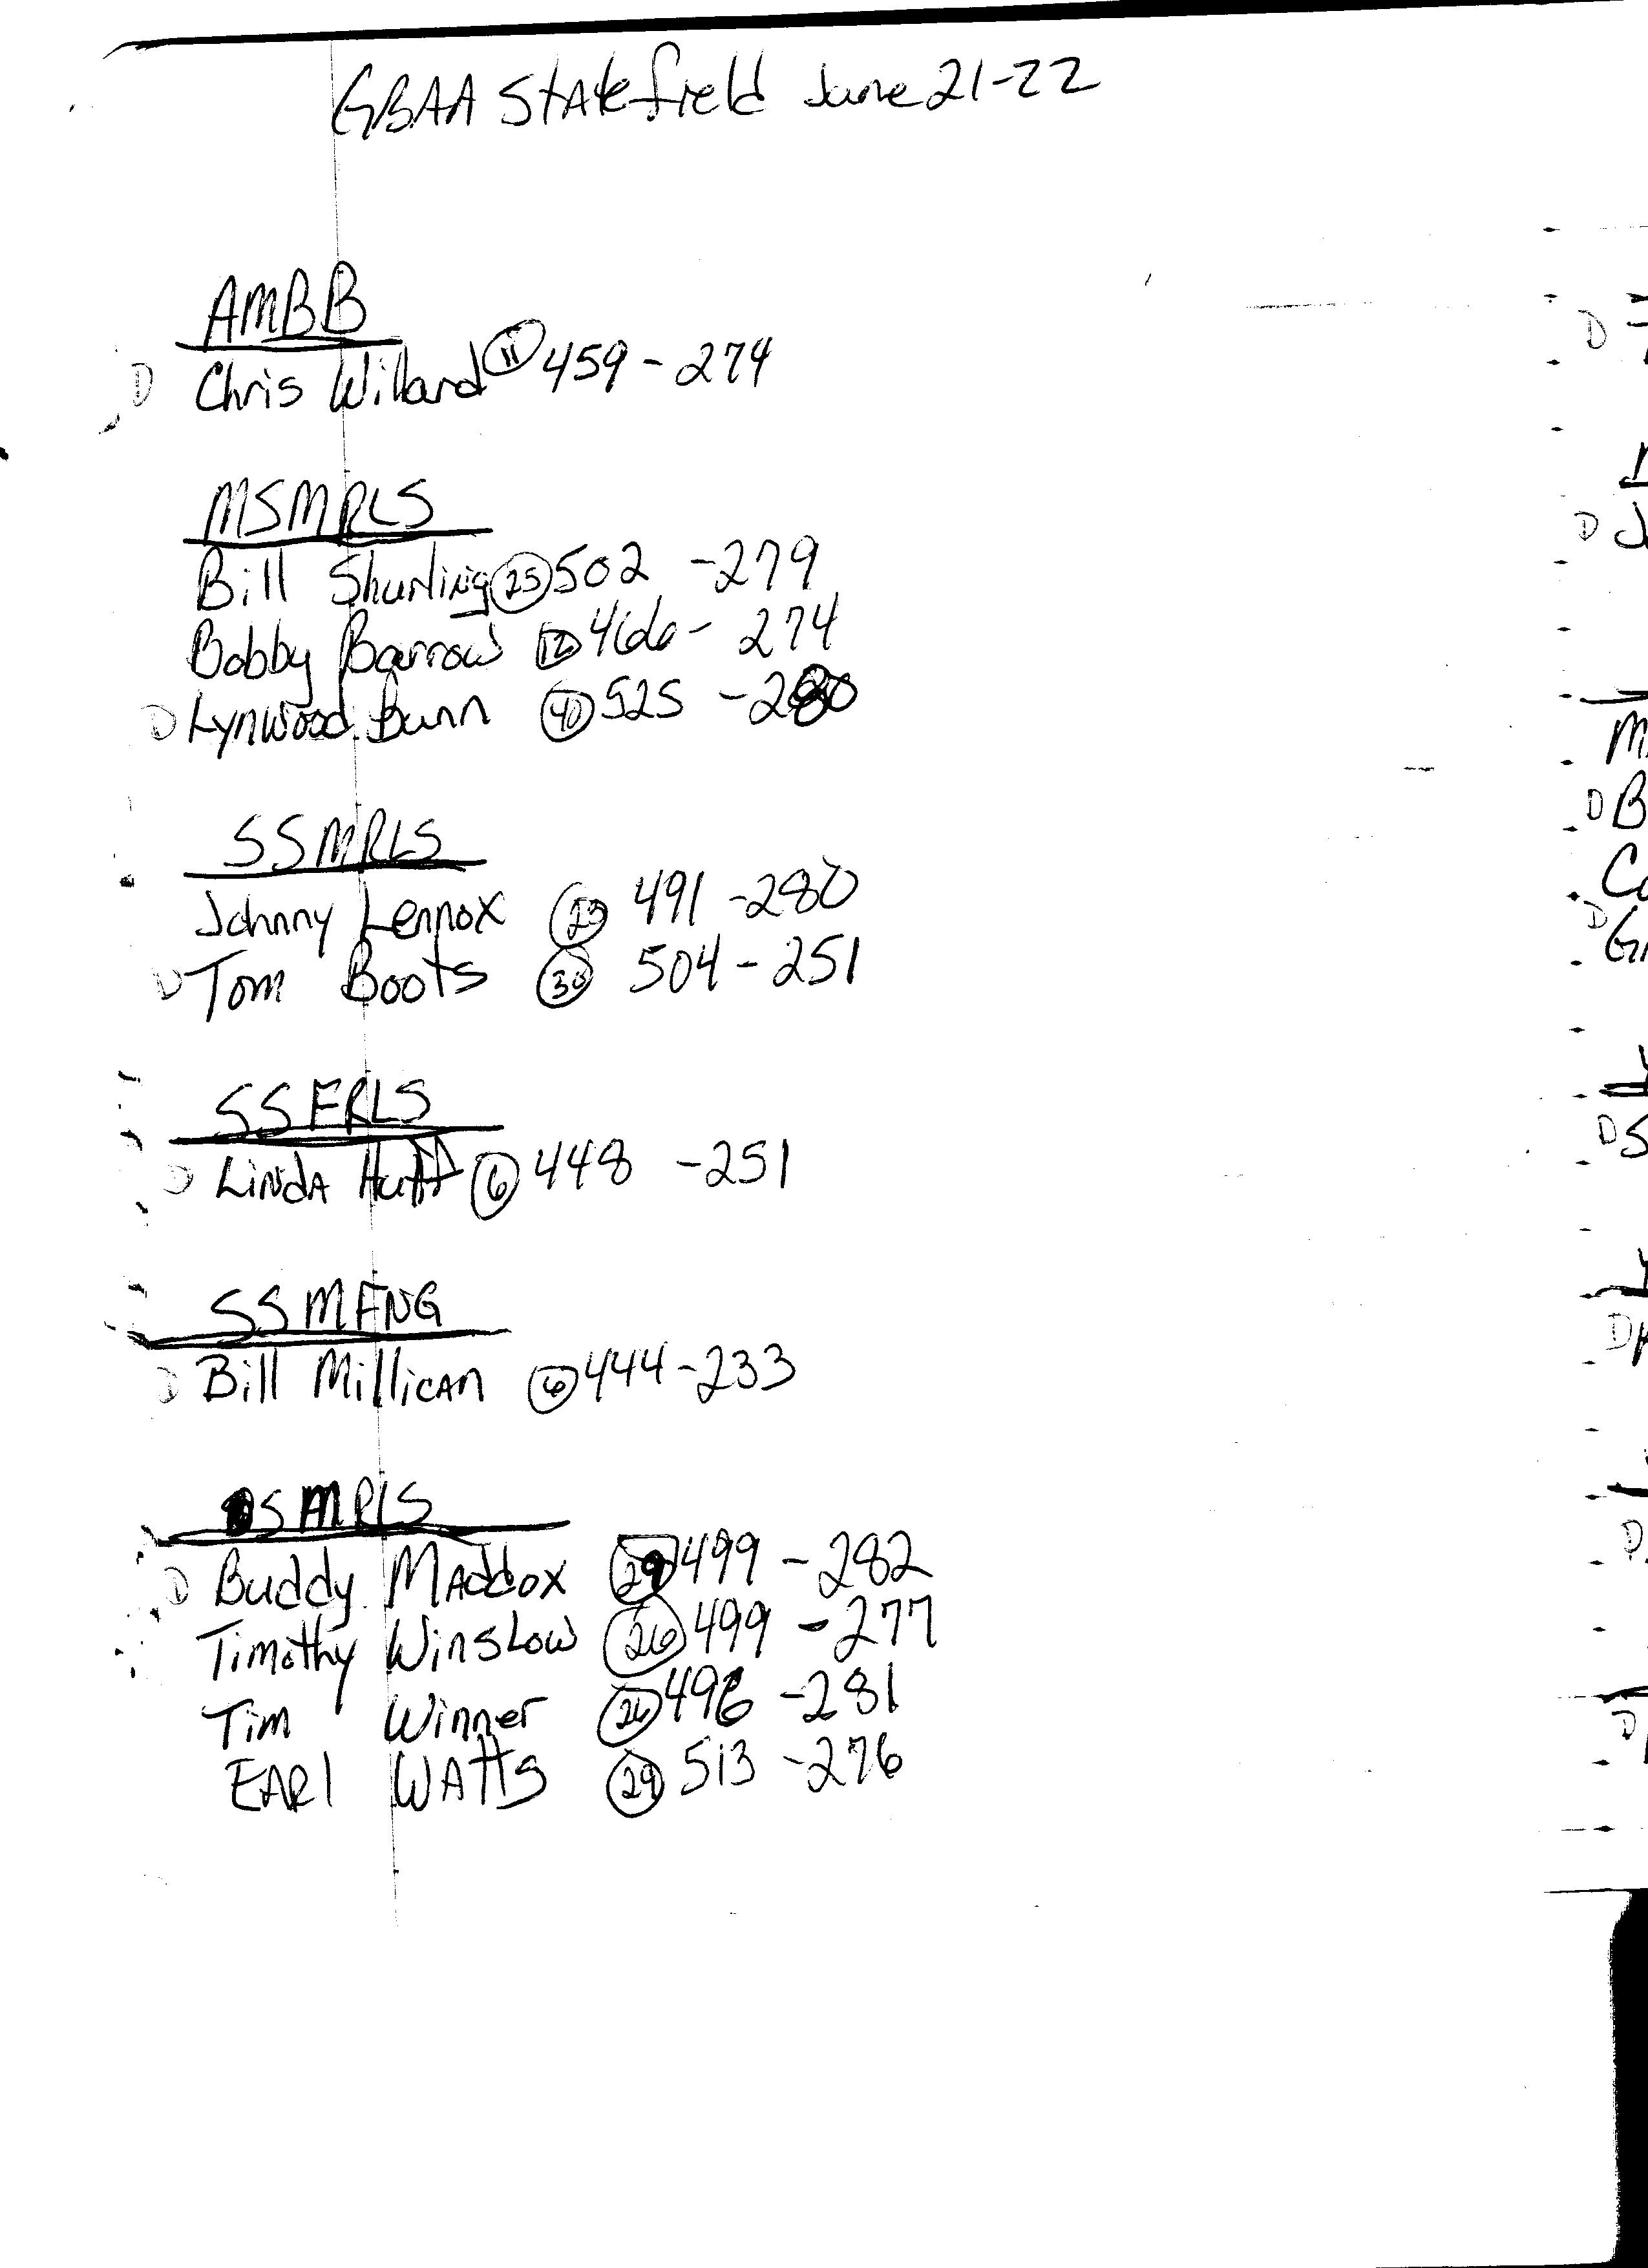 GBAA State field June 21-22
AMBB
D Chris Willard 11 459 - 274
MSMRLS
Bill Shurling 25 502 - 279
Bobby Barrow 12 466 - 274
D Lynwood Bunn 40 525 - 280
SSMRLS
Johnny Lennox 491 - 280
D Tom Boots 30 504 - 251
SSFRLS
D LINDA Huff 6 448 - 251
SSMFNG
D Bill Millican 6 444 - 233
SMRLS
D Buddy MAddox 29 499 - 282
Timothy WinsLow 26 499 - 277
Tim Winner 26 496 - 281
EARl WAtts 29 513 - 276
D
D J
M
D B
C
D G
D S
D
D
D